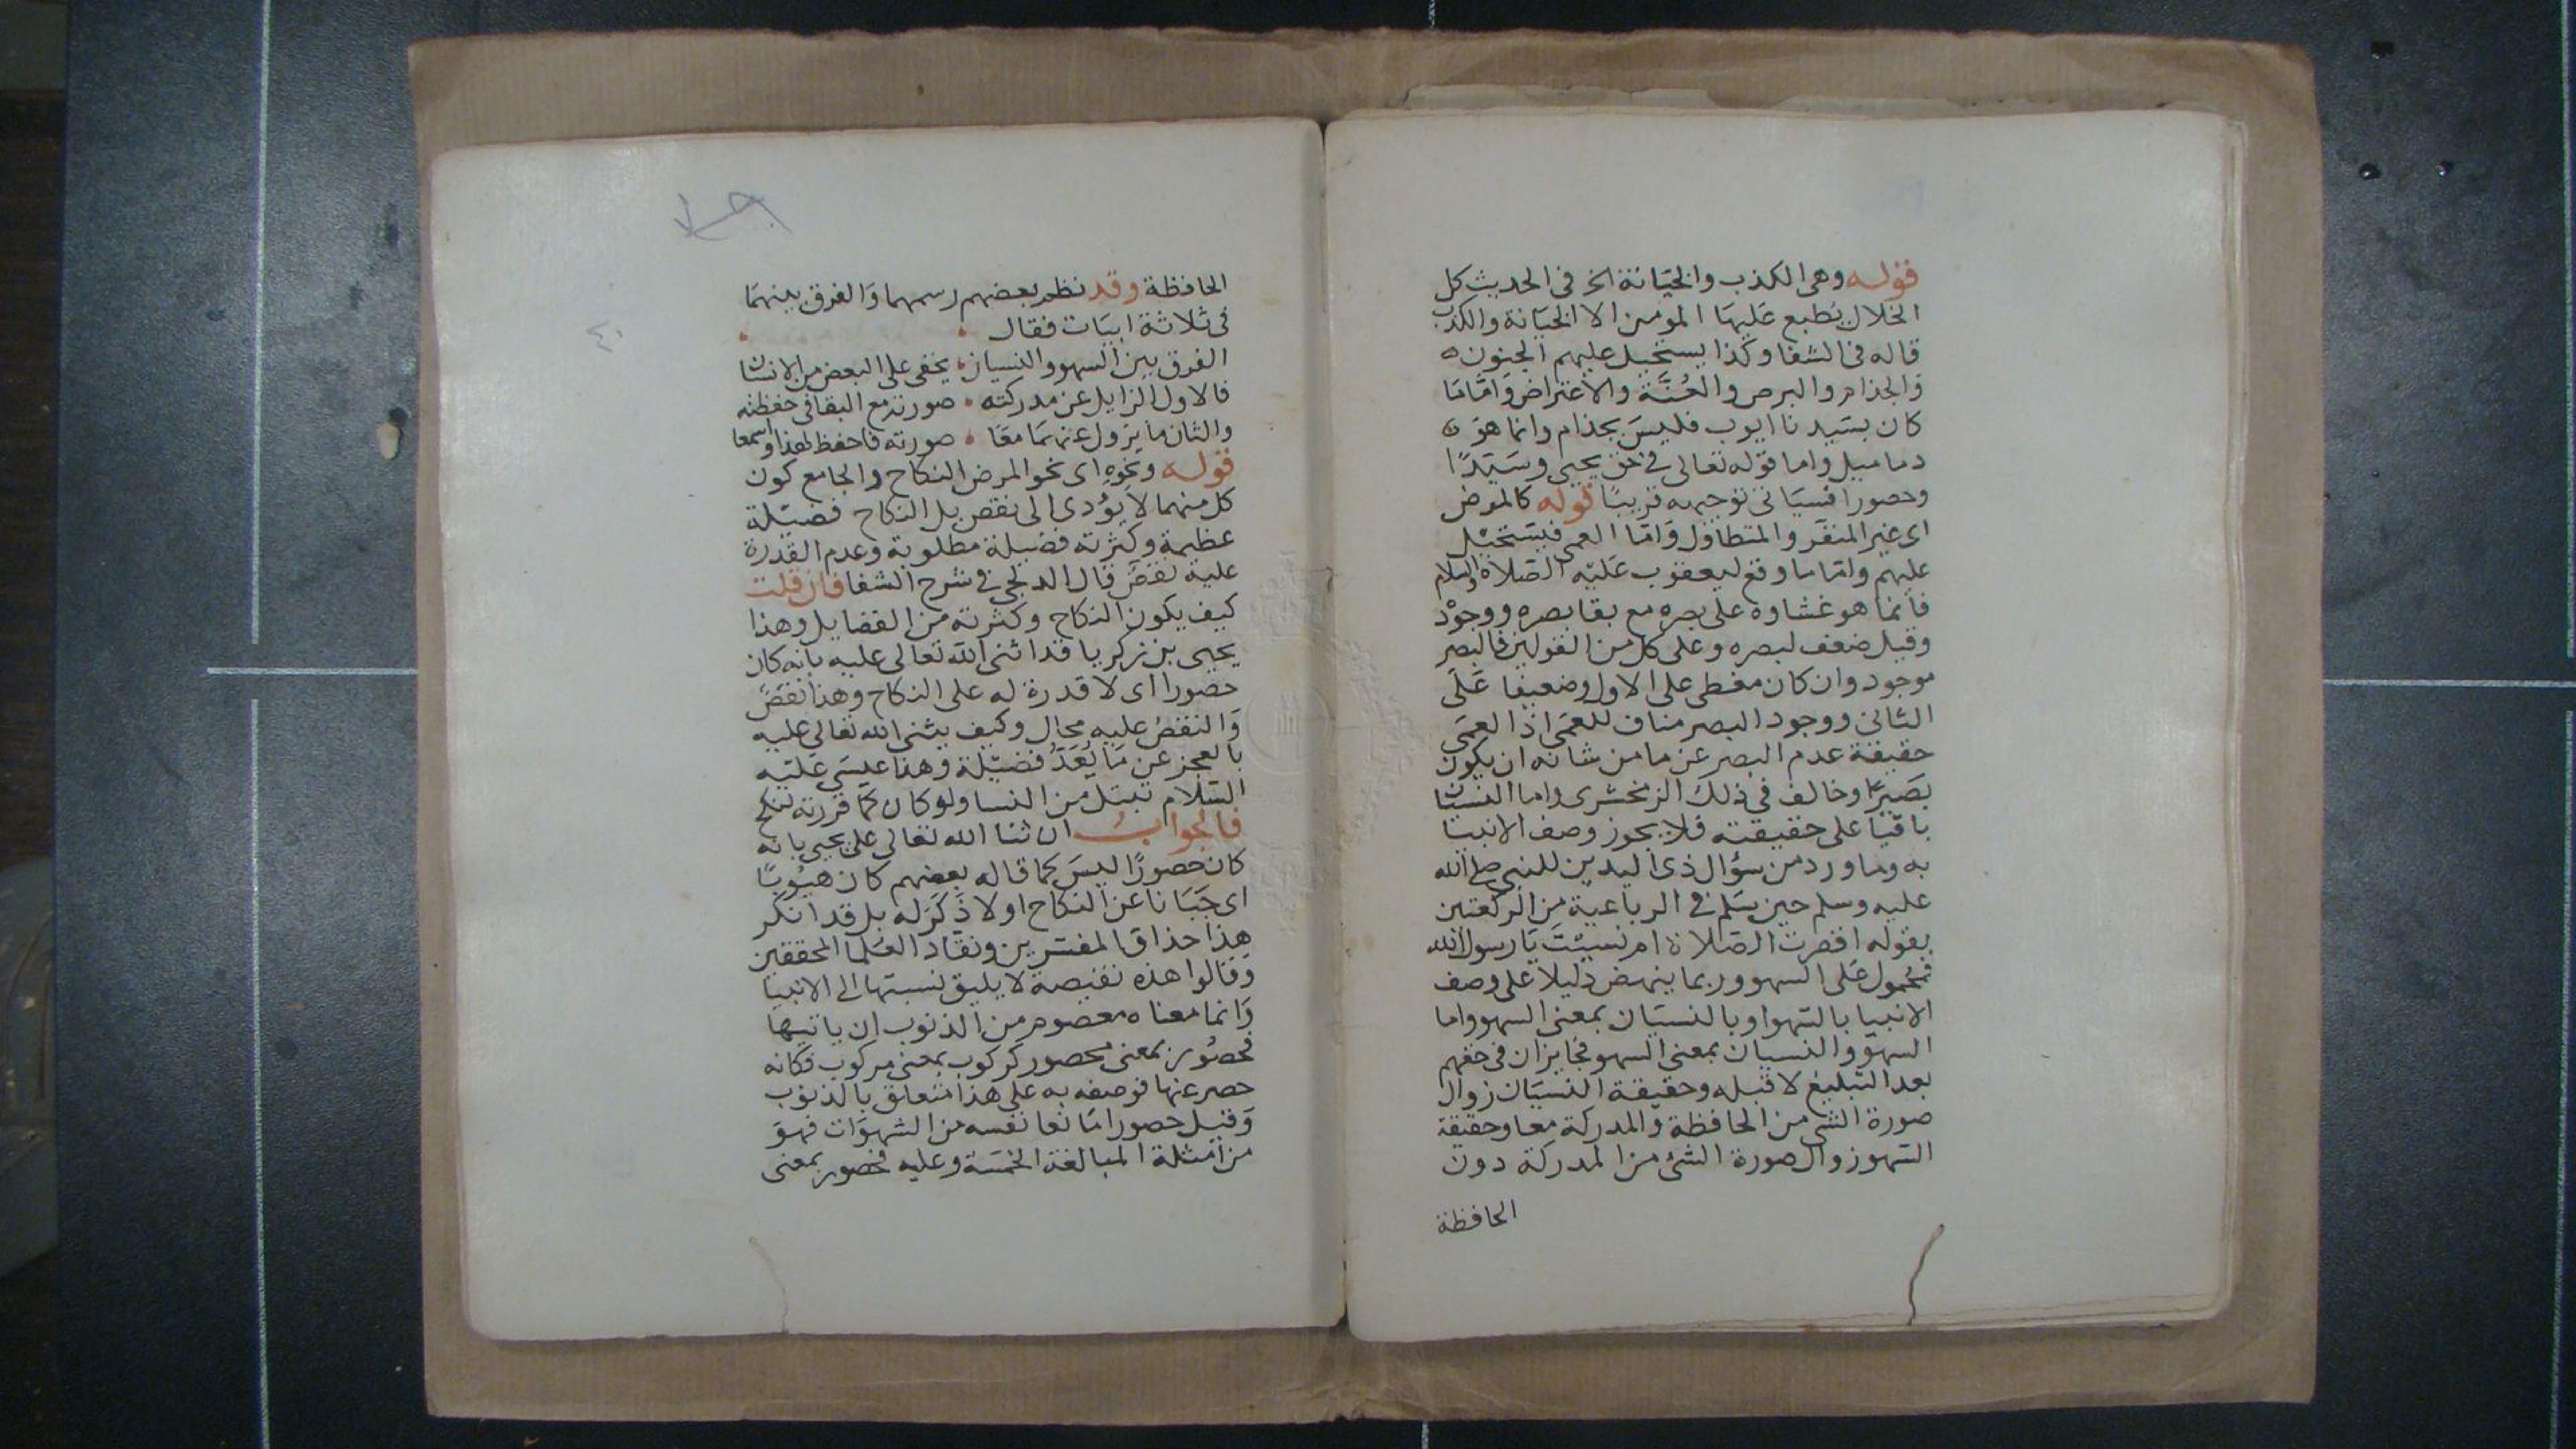 قوله وهى الكذب والخيانة الخ فى الحديث كل
الخلال يُطبع عَليهَا المومن الا الخيَانة والكذب
قاله فى الشفا وكذا يستحيل عليهم الجنون
وَالجذام والبرص والعُنَّة والاعتراض وَامَّا مَا
كان بسَيدنا ايوب فليسَ بجذام وانما هوَ
دماميل واما قوله تعالى فى حق يحيى وسَيّدًا
وحصورا فسيَاتى توجيهه قريبًا قوله كالمرض
اى غير المنفر والمتطاول وَامّا العمى فيسَتحيْل
عليهم وامّا ما وقع ليعقوب عَليْه الصَلاة والسلام
فانما هو غشاوة على بصره مع بقا بصره ووجوْد
وقيل ضعف لبصره وعلى كل من القولين فالبصر
موجود وان كان مغطى على الاول وضعيفا عَلَى
الثانى ووجود البصر مناف للعمَى اذ العمَى
حقيقة عدم البصر عن ما من شانه ان يكون
بصَيرًا وخالف فى ذلكَ الزمخشرى واما النسيَان
باقيَا على حقيقته فلا يجوز وصف الانبيا
به وما ورد من سؤال ذى اليدين للنبى صلى الله
عليه وسلم حين سَلم فى الرباعية مِن الركعتين
بقوله اقصرت الصَلاة ام نسيْتَ يَا رسول الله
فمحمول عَلى السهو وربما ينهض دليلا على وصف
الانبيا بالسَهوا وبالنسيَان بمعنى السهو واما
السهوّ والنسيان بمعنى السهو فجايزان فى حقهم
بعد التبليغ لا قبله وحقيقة النسيَان زوال
صورة الشى من الحافظة وَالمدركة معا وحقيقة
السَهو زوال صورة الشئ من المدركة دون
الحافظة
الحافظة وقد نظم بعضهم رسمهما وَالفرق بينهمَا
فى ثلاثة ابيَات فقال
الفرق بين السهو والنسيان يخفى على البعض من الانسَان
فالاول الزايل عن مدركته صورته مع البقا فى حفظته
والثان ما يزول عنهمَا معَا صورته فاحفظ لهذا واسمعا
قوله ونحوِهِ اى نحو المرض النكاح والجامع كون
كل منهما لا يؤدى الى نقص بل النكاح فضيْلة
عظيمة وكثرته فضيلة مطلوبة وعدم القدرة
عليه نقصٌ قال الدلجى فى شرح الشفا فان قلت
كيف يكون النكاح وكثرته من الفضايل وهذا
يحيى بن زكريا قد اثنى الله تعالى عليه بانه كان
حصورا اى لا قدرة له على النكاح وهذا نقصٌ
وَالنقصُ عليه محال وكيف يثنى الله تعالى عليه
بالعجز عن مَا يُعَدُّ فضيْلة وهذا عيسَى عَليْه
السَلام تبتل من النسا ولو كان كمَا قررته لنكح
فالجواب ان ثنا الله تعالى على يحيى بانه
كان حصورًا ليسَ كما قاله بعضهم كان هيُوبًا
اى جَبَانا عن النكاح او لا ذَكَرَ له بل قد انكر
هذا حذاق المفسرين ونقاد العُلما المحققين
وَقالوا هذه نقيصة لا يليق نسبتها الى الانبيا
وَانما معناه معصوم من الذنوب ان ياتيها
فحصُور بمعنى محصور كركوب بمعنى مركوب فكانه
حصر عنها فوصفه به على هذا متعلق بالذنوب
وَقيل حصورا مَانعا نفسه من الشهوَات فهوَ
من امثلة المبالغة الخمسَة وعليه فحصور بمعنى